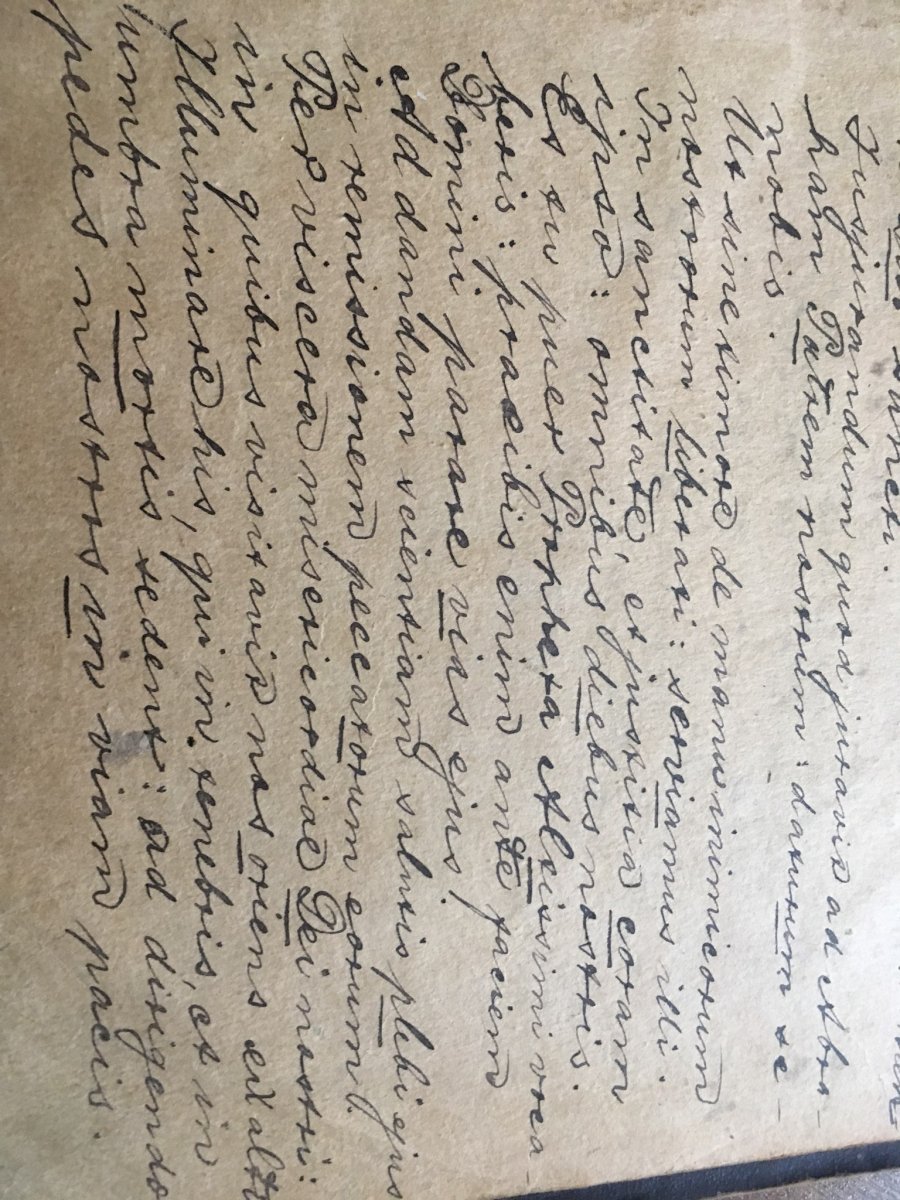 sancti.
Jusjurandum quod juravit ad Abra-
ham Patrem nostrum: daturum se-
nobis.
Ut sine timore de manu inimicorum
nostrorum liberati: serviamus illi.
In sanctitate et justitia coram
ipso: omnibus diebus nostris.
Et tu puer Propheta Altissimi voca-
beris: praeibis enim ante faciem
Domini parare vias ejus.
Ad dandam scientiam salutis plebi ejus
in remissionem peccatorum eorum.
Per viscera misericordiae Dei nostri:
in quibus visitavit nos oriens ex alto
Illuminare his, qui in tenebris, et in
umbra mortis sedent: ad dirigendo
pedes nostros in viam pacis.